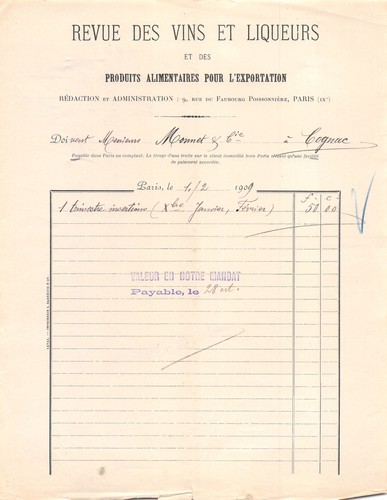 REVUE DES VINS ET LIQUEURS
ET DES
PRODUITS ALIMENTAIRES POUR L'EXPORTATION
RÉDACTION ET ADMINISTRATION : 9, RUE DU FAUBOURG POISSONNIÈRE, PARIS (IXe)
Doivent Messieurs Monnet & Cie à Cognac
Payable dans Paris au comptant. Le tirage d'une traite sur le client
de paiement accordée.
Paris, le 1/2 1909
F. C.
1 trimestre insertions (Xbre Janvier, Février) 50 00
VALEUR EN NOTRE MANDAT
Payable, le 28 ct.